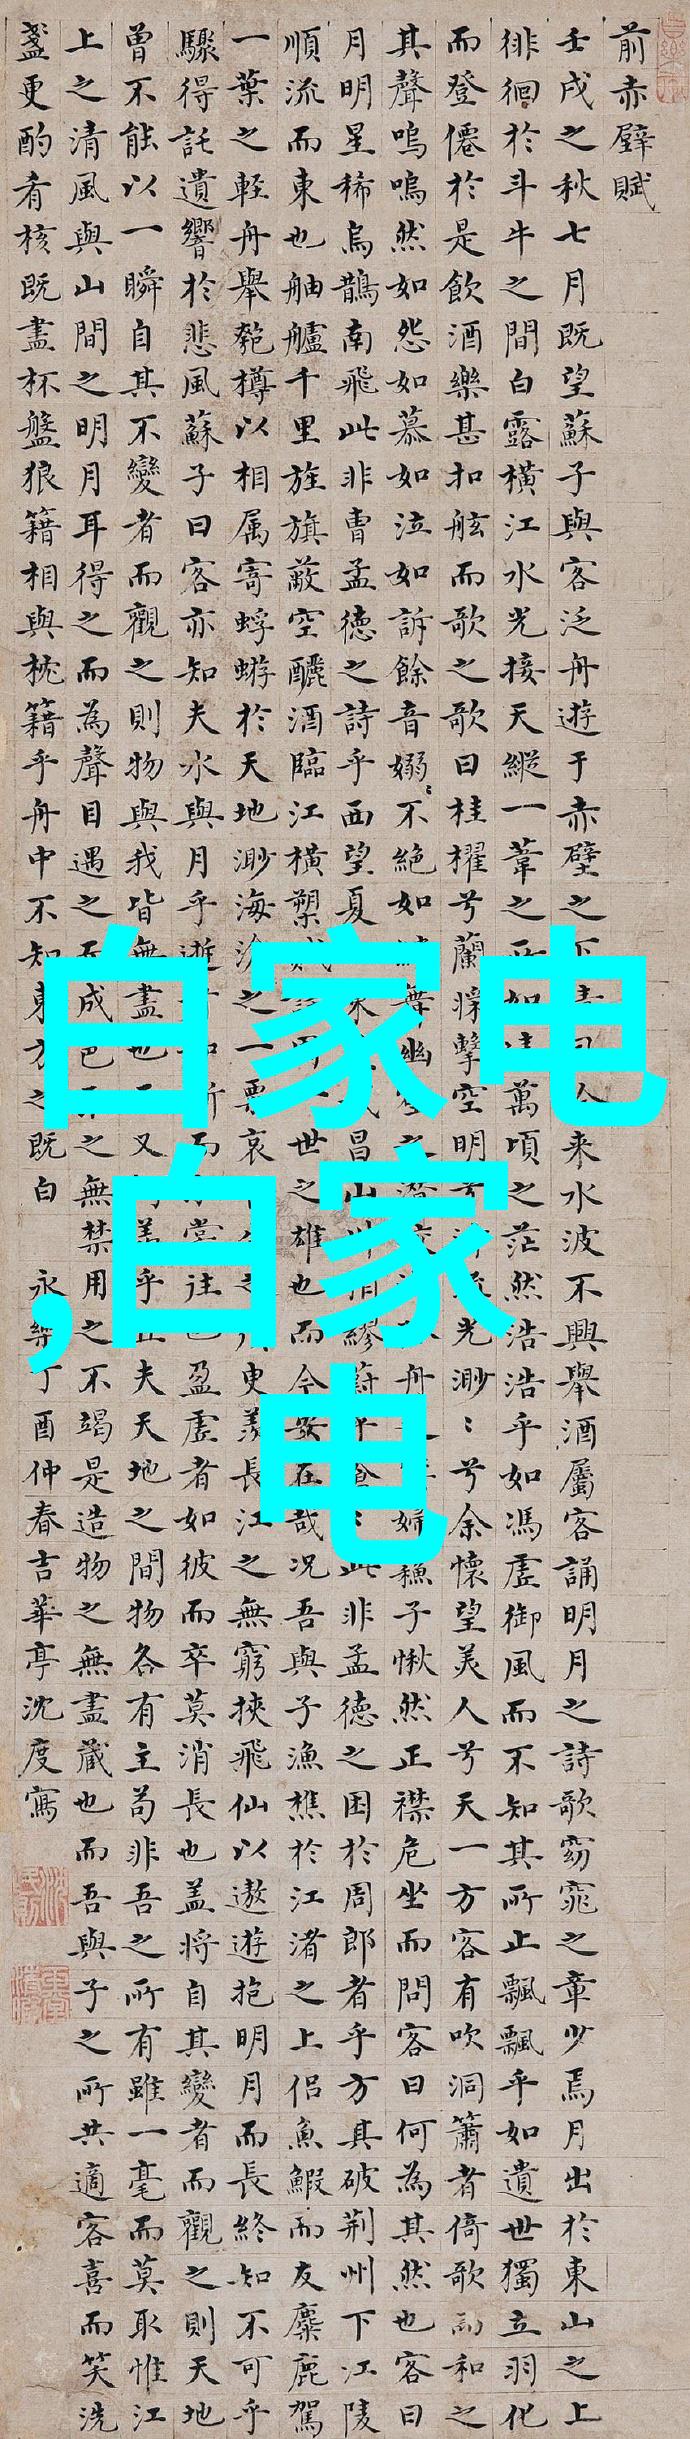 前赤壁賦
壬戌之秋七月既望蘇子與客泛舟遊于赤壁之來水波不興舉酒屬客誦明月之詩歌窈窕之章少焉月出於東山之上
徘徊於斗牛之間白露橫江水光接天縱一葦之如萬頃之茫然浩浩乎如馮虛御風而不知其所止飄飄乎如遺世獨立羽化
而登僊於是飲酒樂甚扣舷而歌之歌曰桂櫂兮蘭槳擊空明兮光渺〻兮余懷望美人兮天一方客有吹洞簫者倚歌而和之
其聲嗚嗚然如怨如慕如泣如訴餘音嫋〻不絕如舞幽之舟婦蘇子愀然正襟危坐而問客曰何為其然也客曰
月明星稀烏鵲南飛此非曹孟德之詩乎西望夏昌山川相繆乎此非孟德之困於周郎者乎方其破荊州下江陵
順流而東也舳艫千里旌旗蔽空釃酒臨江橫槊世之雄也而今安在哉況吾與子漁樵於江渚之上侶魚鰕而友麋鹿駕
一葉之輕舟舉匏樽以相属寄蜉蝣於天地渺海之一粟哀更羨長江之無窮挾飛仙以遨遊抱明月而長終知不可乎
驟得託遺響於悲風蘇子曰客亦知夫水與月乎逝斯而嘗往也盈虛者如彼而卒莫消長也盖將自其變者而觀之則天地
曾不能以一瞬自其不變者而觀之則物與我皆無盡也又乎夫天地之間物各有主苟非吾之所有雖一毫而莫取惟江
上之清風與山間之明月耳得之而為聲目遇之成色之無禁用之不竭是造物之無盡藏也而吾與子之所共適客喜而笑洗
盞更酌肴核既盡杯盤狼籍相與枕籍乎舟中不知東方之既白 永樂丁酉仲春吉華亭沈度寫
白家电
,白家
电